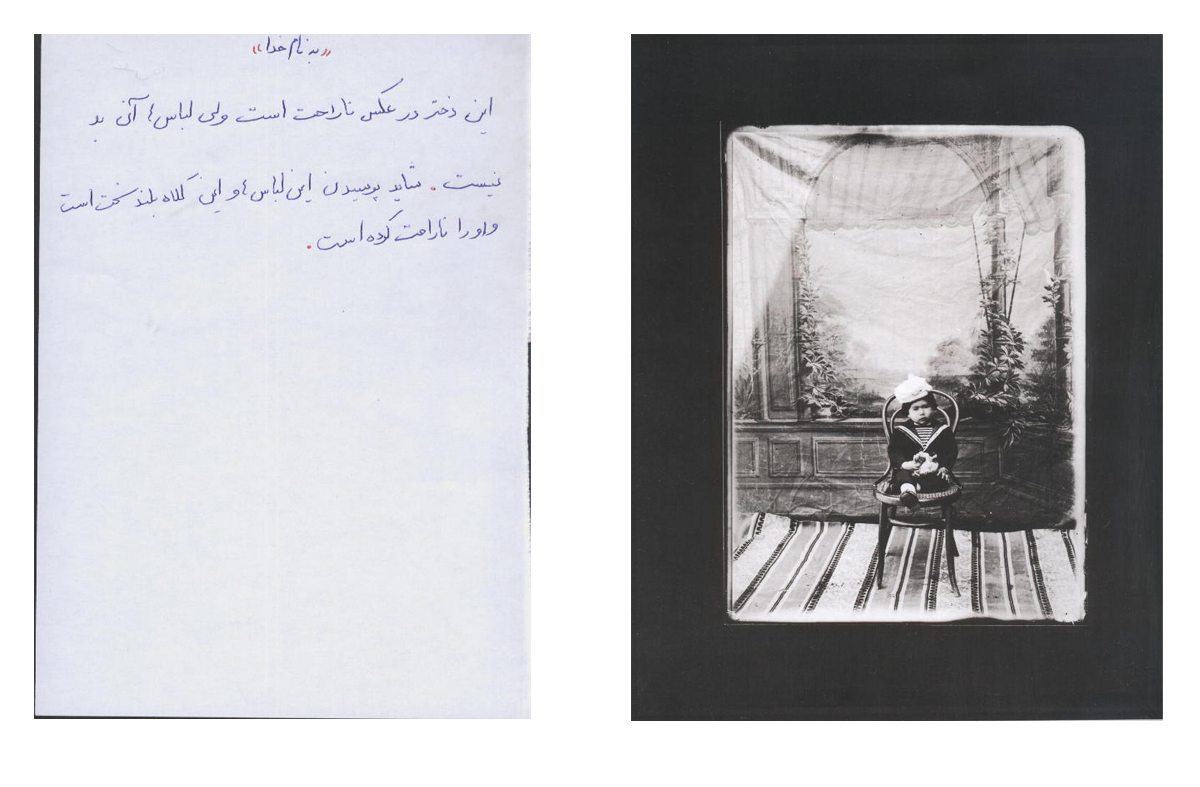 «به نام خدا»
این دختر در عکس ناراحت است ولی لباس ها آن بد
نیست . شاید پوسیدن این لباس ها و این کلاه بلند سخت است
و او را ناراحت کرده است .